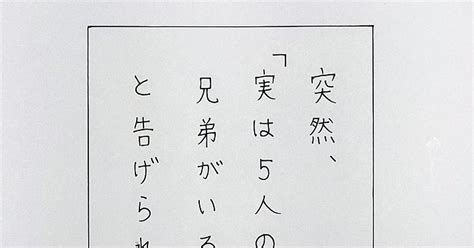 突然、
「実は5人の
兄弟がいる
と告げられ